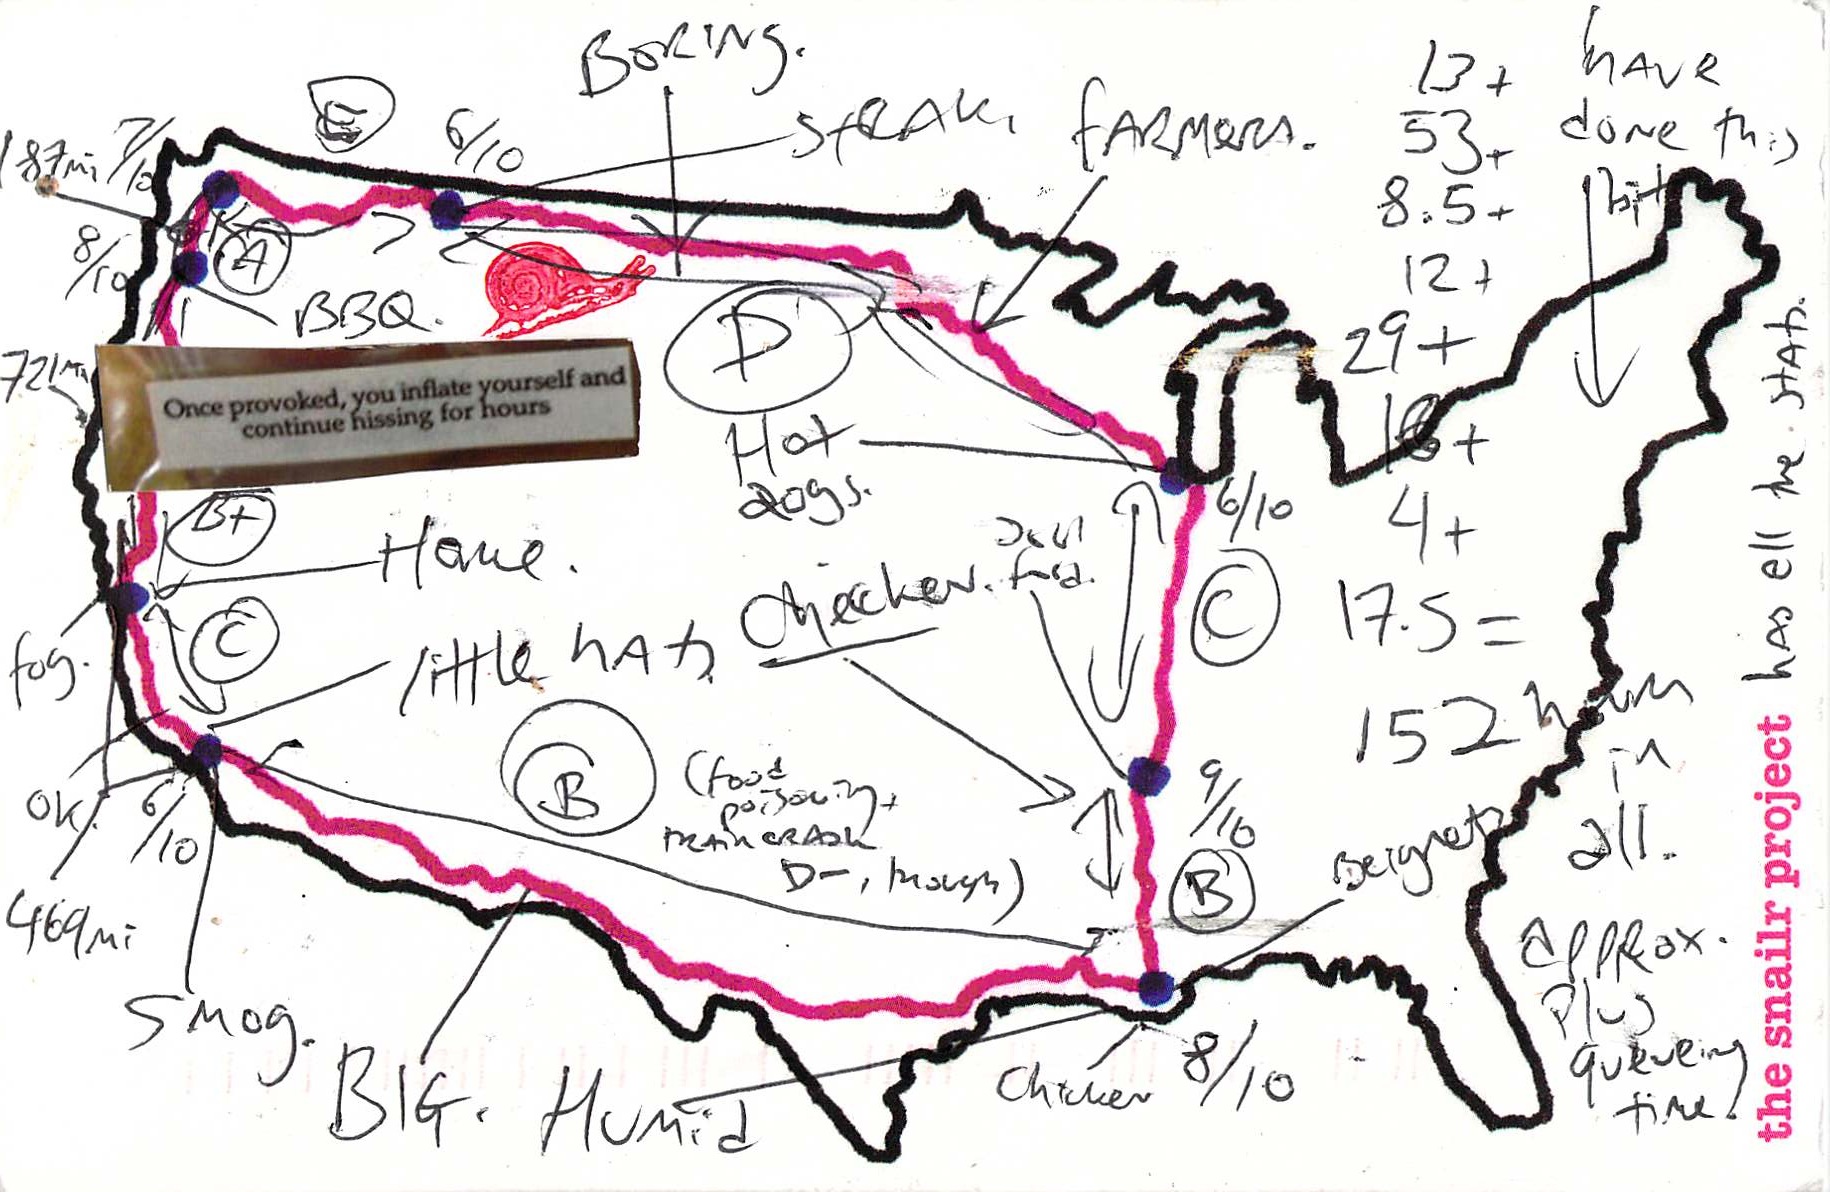 BORING.
E
6/10
STEAK,
FARMERS.
13+
53+
8.5+
12+
29+
18+
4+
17.5=
152 hours
in
all.
Approx.
plus
queueing
time.
have
done this
bit
187mi
7/10
8/10
A
BBQ.
721mi
Once provoked, you inflate yourself and
continue hissing for hours
D
Hot
dogs.
6/10
B+
Home.
fog.
C
little hats
chicken.
Soul
food.
C
OK.
6/10
469mi
B
(food
poisoning +
train crash
D-, though)
9/10
B
Beignets
Smog.
BIG.
Humid
chicken
8/10
has all the stats.
the snailr project